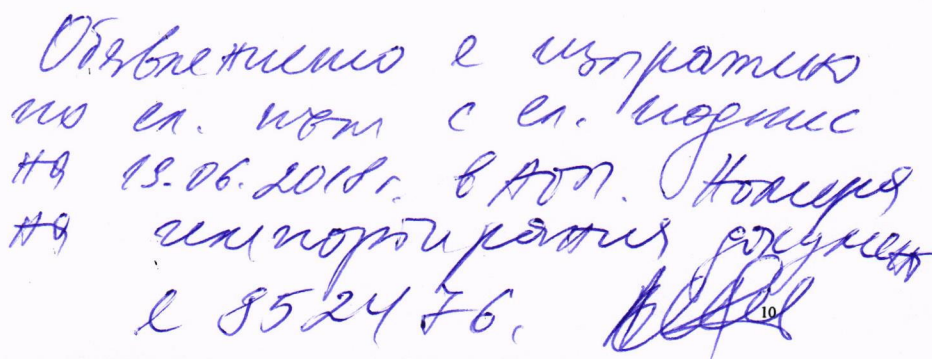 Обявлението е изпратено
по ел. път с ел. подпис
на 19.06.2018г. в АОП. Номера
на импортирания документ
е 852476.
10